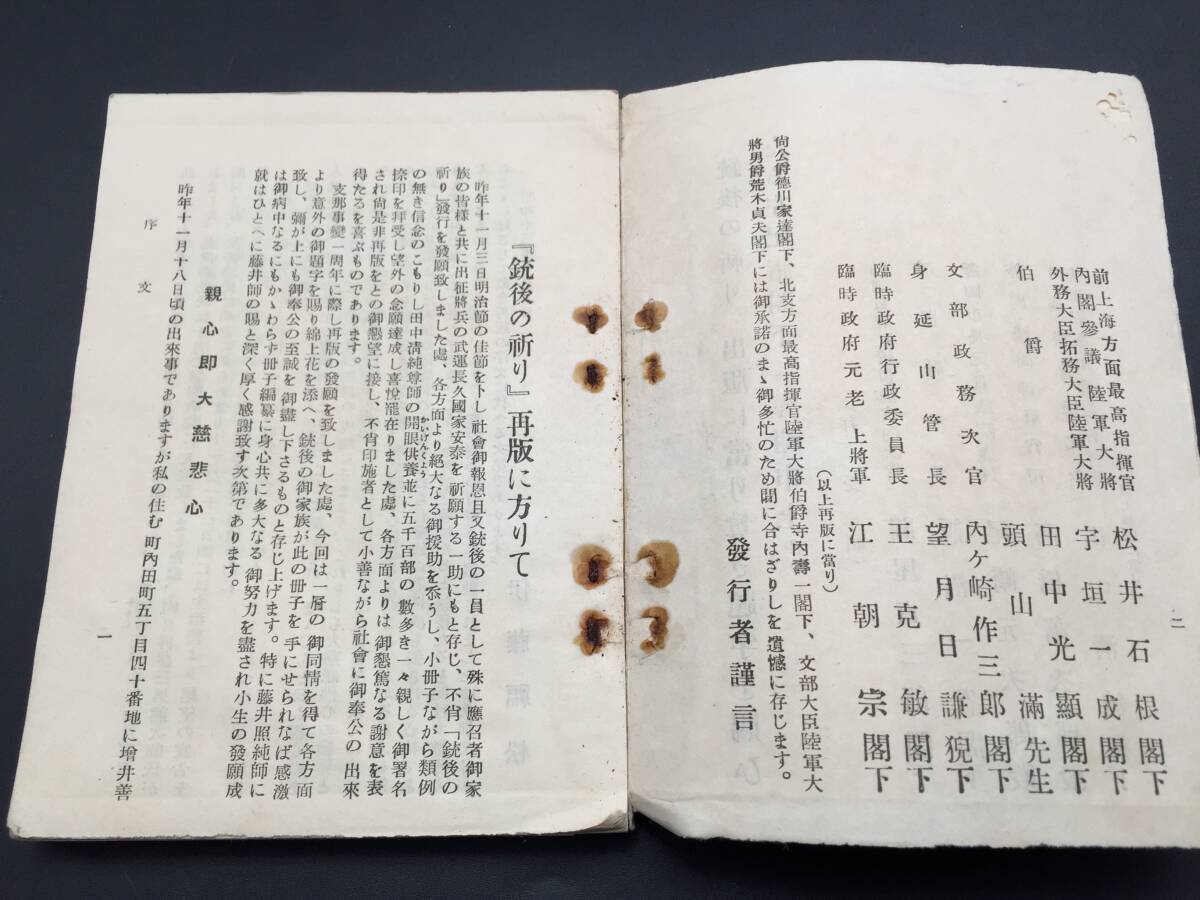 二
前上海方面最高指揮官
內閣參議陸軍大將
外務大臣拓務大臣陸軍大將
伯爵
文部政務次官
身延山管長
臨時政府行政委員長
臨時政府元老上將軍
松井石根閣下
宇垣一成閣下
田中光顯閣下
頭山滿先生
內ケ崎作三郎閣下
望月日謙猊下
王克敏閣下
江朝宗閣下
(以上再版に當り)
尙公爵德川家達閣下、北支方面最高指揮官陸軍大將伯爵寺內壽一閣下、文部大臣陸軍大
將男爵荒木貞夫閣下には御承諾のまゝ御多忙のため間に合はざりしを遺憾に存じます。
發行者謹言
『銃後の祈り』再版に方りて
昨年十一月三日明治節の佳節を卜し社會御報恩且又銃後の一員として殊に應召者御家
族の皆樣と共に出征將兵の武運長久國家安泰を祈願する一助にもと存じ、不肖「銃後の
祈り」發行を發願致しました處、各方面より絕大なる御援助を忝うし、小冊子ながら類例
の無き信念のこもりし田中淸純尊師の開眼供養並に五千百部の數多き一々親しく御署名
かいげんくよう
捺印を拜受し望外の念願達成し喜悅罷在りました處、各方面よりは御懇篤なる謝意を表
され尙是非再版をとの御懇望に接し、不肖印施者として小善ながら社會に御奉公の出來
得たるを喜ぶものであります。
支那事變一周年に際し再版の發願を致しました處、今回は一層の御同情を得て各方面
より意外の御題字を賜り綿上花を添へ、銃後の御家族が此の冊子を手にせられなば感激
致し、彌が上にも御奉公の至誠を御盡し下さるものと存じ上げます。特に藤井照純師に
は御病中なるにもかゝわらず冊子編纂に身心共に多大なる御努力を盡され小生の發願成
就はひとへに藤井師の賜と深く厚く感謝致す次第であります。
親心卽大慈悲心
昨年十一月十八日頃の出來事でありますが私の住む町內田町五丁目四十番地に增井善
序文
一